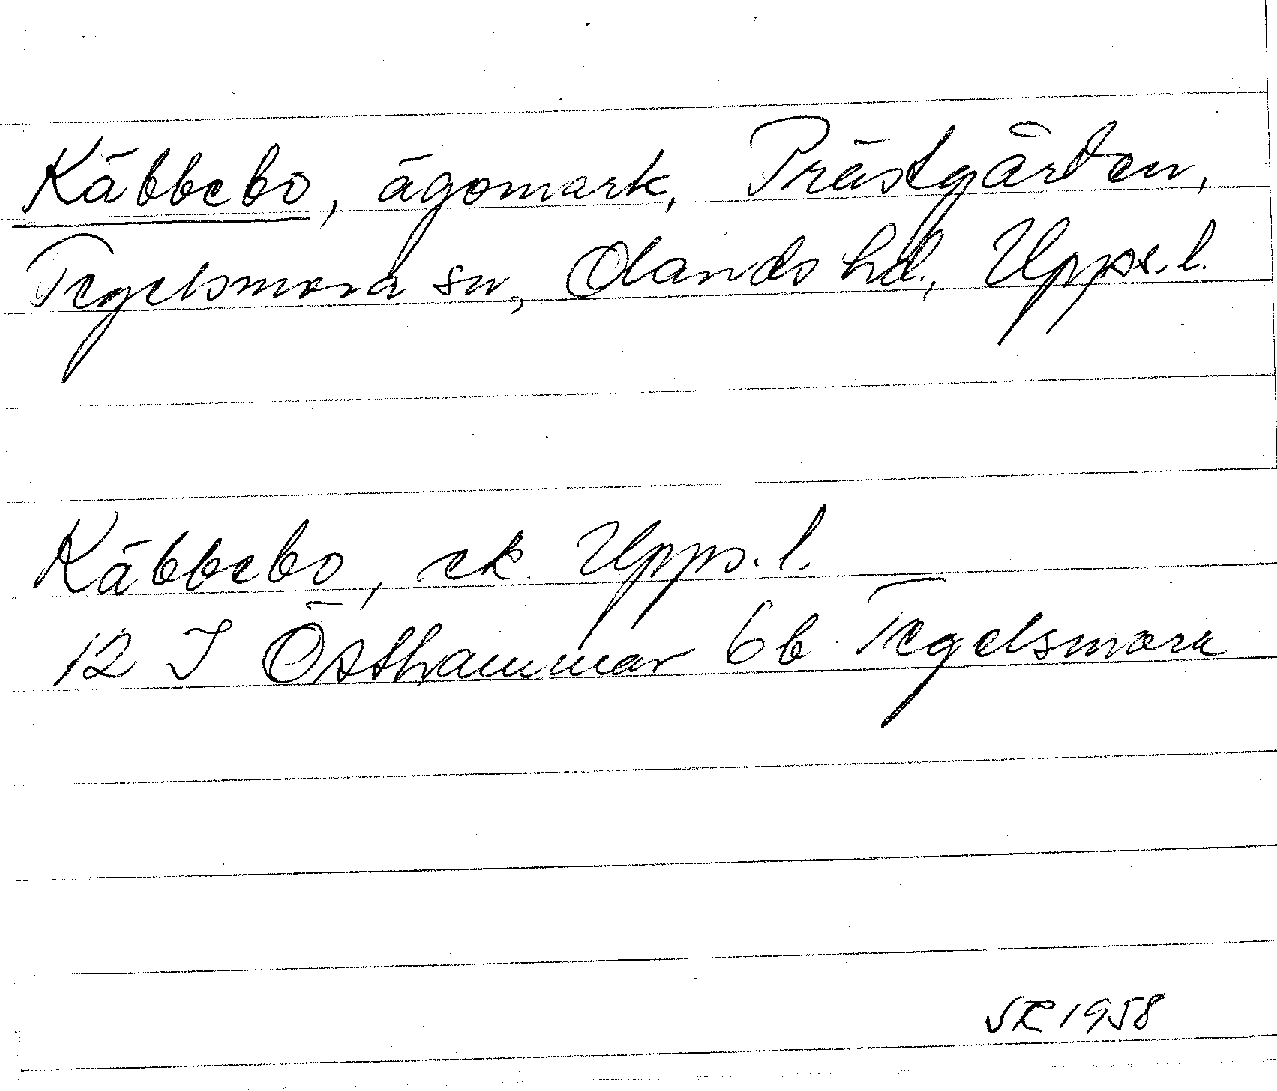 Käbbebo, ägomark, Prästgården,
Tegelsmora sn, Olands hd, Upps. l.
Käbbebo, ek. Upps. l.
12 I Östhammar 6b Tegelsmora
1958